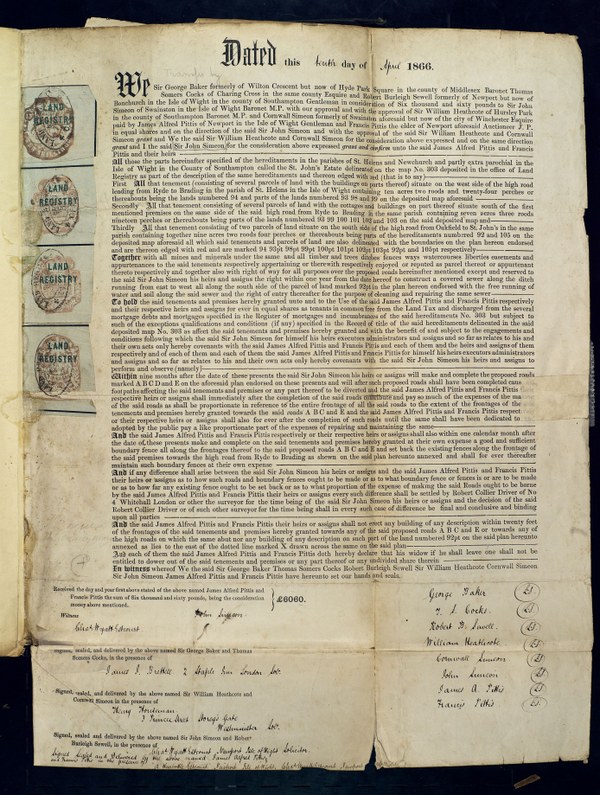 Dated this tenth day of April 1866.
We Sir George Baker formerly of Wilton Crescent but now of Hyde Park Square in the county of Middlesex Baronet Thomas
Somers Cocks of Charing Cross in the same county Esquire and Robert Burleigh Sewell formerly of Newport but now of
Bonchurch in the Isle of Wight in the county of Southampton Gentleman in consideration of Six thousand and sixty pounds to Sir
John Simeon of Swainston in the Isle of Wight Baronet M.P. with our approval and with the approval of Sir William Heathcote of Hursley Park
in the county of Southampton Baronet M.P. and Cornwall Simeon formerly of Swainston aforesaid but now of the city of Winchester Esquire
paid by James Alfred Pittis of Newport in the Isle of Wight Gentleman and Francis Pittis the elder of Newport aforesaid Auctioneer J P,
in equal shares and on the direction of the said Sir John Simeon and with the approval of the said Sir William Heathcote and Cornwall
Simeon grant and We the said Sir William Heathcote and Cornwall Simeon for the consideration above expressed and on the same direction
grant and I the said Sir John Simeon for the consideration above expressed grant and confirm unto the said James Alfred Pittis and Francis
Pittis and their heirs
All those the parts hereinafter specified of the hereditaments in the parishes of St. Helens and Newchurch and partly extra parochial in the
Isle of Wight in the County of Southampton called the St. John's Estate delineated on the map No. 303 deposited in the office of Land
Registry as part of the description of the same hereditaments and thereon edged with red (that is to say)
First All that tenement (consisting of several parcels of land with the buildings on parts thereof) situate on the west side of the high road
leading from Ryde to Brading in the parish of St. Helens in the Isle of Wight containing ten acres two roods and twenty-four perches or
thereabouts being the lands numbered 94 and parts of the lands numbered 93 98 and 99 on the deposited map aforesaid
Secondly All that tenement consisting of several parcels of land with the cottages and buildings on part thereof situate south of the first
mentioned premises on the same side of the high road from Ryde to Brading in the same parish containing seven acres three roods
nineteen perches or thereabouts being parts of the lands numbered 93 99 100 101 102 and 103 on the said deposited map
Thirdly All that tenement consisting of two parcels of land situate on the south side of the high road from Oakfield to St. John's in the same
parish containing together nine acres two roods four perches or thereabouts being parts of the hereditaments numbered 92 and 105 on the
deposited map aforesaid all which said tenements and parcels of land are also delineated with the boundaries on the plan hereon endorsed
and are thereon edged with red and are marked 94 93pt 98pt 99pt 100pt 101pt 102pt 103pt 92pt and 105pt respectively
Together with all mines and minerals under the same and all timber and trees ditches fences ways watercourses liberties easements and
appurtenances to the said tenements respectively appertaining or therewith respectively enjoyed or reputed as parcel thereof or appurtenant
thereto respectively and together also with right of way for all purposes over the proposed roads hereinafter mentioned except and reserved to
the said Sir John Simeon his heirs and assigns the right within one year from the date hereof to construct a covered sewer along the ditch
running from east to west all along the south side of the parcel of land marked 92pt in the plan hereon endorsed with the free running of
water and soil along the said sewer and the right of entry thereafter for the purpose of cleaning and repairing the same sewer
To hold the said tenements and premises hereby granted unto and to the Use of the said James Alfred Pittis and Francis Pittis respectively
and their respective heirs and assigns for ever in equal shares as tenants in common free from the Land Tax and discharged from the several
mortgage debts and mortgages specified in the Register of mortgages and incumbrances of the said hereditaments No. 303 but subject to
such of the exceptions qualifications and conditions (if any) specified in the Record of title of the said hereditaments delineated in the said
deposited map No. 303 as affect the said tenements and premises hereby granted and with the benefit of and subject to the engagements and
conditions following which the said Sir John Simeon for himself his heirs executors administrators and assigns and so far as relates to his and
their own acts only hereby covenants with the said James Alfred Pittis and Francis Pittis and each of them and the heirs and assigns of them
respectively and of each of them and each of them the said James Alfred Pittis and Francis Pittis for himself his heirs executors administrators
and assigns and so far as relates to his and their own acts only hereby covenants with the said Sir John Simeon his heirs and assigns to
perform and observe (namely)
Within nine months after the date of these presents the said Sir John Simeon his heirs or assigns will make and complete the proposed roads
marked A B C D and E on the aforesaid plan endorsed on these presents and will after such proposed roads shall have been completed cause
foot paths affecting the said tenements and premises or any part thereof to be diverted and the said James Alfred Pittis and Francis Pittis
respective heirs or assigns shall immediately after the completion of the said roads contribute and pay so much of the expenses of the ma
of the said roads as shall be proportionate in reference to the entire frontage of all the said roads to the extent of the frontages of the
tenements and premises hereby granted towards the said roads A B C and E and the said James Alfred Pittis and Francis Pittis respect
or their respective heirs or assigns shall also for ever after the completion of such roads until the same shall have been dedicated to
adopted by the public pay a like proportionate part of the expenses of repairing and maintaining the same
And the said James Alfred Pittis and Francis Pittis respectively or their respective heirs or assigns shall also within one calendar month after
the date of these presents make and complete on the said tenements and premises hereby granted at their own expense a good and sufficient
boundary fence all along the frontages thereof to the said proposed roads A B C and E and set back the existing fence along the frontage of
the said premises towards the high road from Ryde to Brading as shewn on the said plan hereunto annexed and shall for ever thereafter
maintain such boundary fences at their own expense
And if any difference shall arise between the said Sir John Simeon his heirs or assigns and the said James Alfred Pittis and Francis Pittis
their heirs or assigns as to how such roads and boundary fences ought to be made or as to what boundary fence or fences is or are to be made
or as to how far any existing fence ought to be set back or as to what proportion of the expense of making the said Roads ought to be borne
by the said James Alfred Pittis and Francis Pittis their heirs or assigns every such difference shall be settled by Robert Collier Driver of No
4 Whitehall London or other the surveyor for the time being of the said Sir John Simeon his heirs or assigns and the decision of the said
Robert Collier Driver or of such other surveyor for the time being shall in every such case of difference be final and conclusive and binding
upon all parties
And the said James Alfred Pittis and Francis Pittis their heirs or assigns shall not erect any building of any description within twenty feet
of the frontages of the said tenements and premises hereby granted towards any of the said proposed roads A B C and E or towards any of
the high roads on which the same abut nor any building of any description on such part of the land numbered 92pt on the said plan hereunto
annexed as lies to the east of the dotted line marked X drawn across the same on the said plan
And each of them the said James Alfred Pittis and Francis Pittis doth hereby declare that his widow if he shall leave one shall not be
entitled to dower out of the said tenements and premises or any part thereof or any undivided share therein
In witness whereof We the said Sir George Baker Thomas Somers Cocks Robert Burleigh Sewell Sir William Heathcote Cornwall Simeon
Sir John Simeon James Alfred Pittis and Francis Pittis have hereunto set our hands and seals.
Received the day and year first above stated of the above named James Alfred Pittis and
Francis Pittis the sum of Six thousand and sixty pounds, being the consideration
money above mentioned. £6060.
Witness
John Simeon.
Signed, sealed, and delivered by the above named Sir George Baker and Thomas
Somers Cocks, in the presence of
2 Staple Inn London Sol.
Signed, sealed, and delivered by the above named Sir William Heathcote and
Cornwall Simeon in the presence of
Westminster Sol.
Signed, sealed and delivered by the above named Sir John Simeon and Robert
Burleigh Sewell, in the presence of
Newport Isle of Wight Solicitor
Signed Sealed and Delivered by the above named James Alfred Pittis
and Francis Pittis in the presence of
George Baker
T. S. Cocks.
Robert B. Sewell.
William Heathcote
Cornwall Simeon
John Simeon
James A. Pittis
Francis Pittis
LAND
REGISTRY
LAND
REGISTRY
LAND
REGISTRY
LAND
REGISTRY